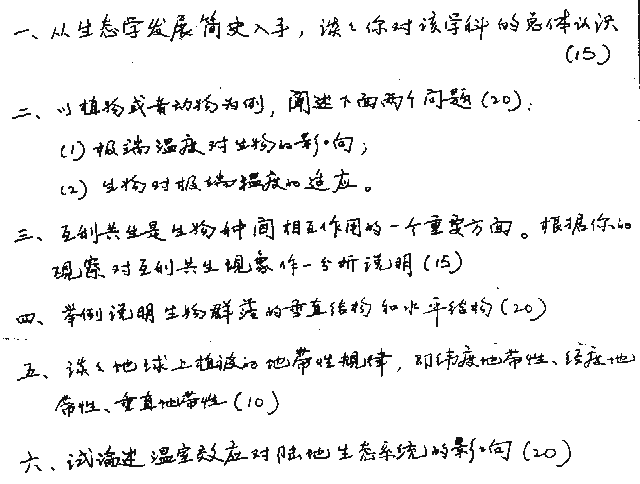 一、从生态学发展简史入手，谈谈你对该学科的总体认识
(15)
二、以植物或者动物为例，阐述下面两个问题(20)：
(1) 极端温度对生物的影响；
(2) 生物对极端温度的适应。
三、互利共生是生物种间相互作用的一个重要方面。根据你的
观察对互利共生现象作一分析说明(15)
四、举例说明生物群落的垂直结构和水平结构(20)
五、谈谈地球上植被的地带性规律，即纬度地带性、经度地
带性、垂直地带性(10)
六、试论述温室效应对陆地生态系统的影响(20)